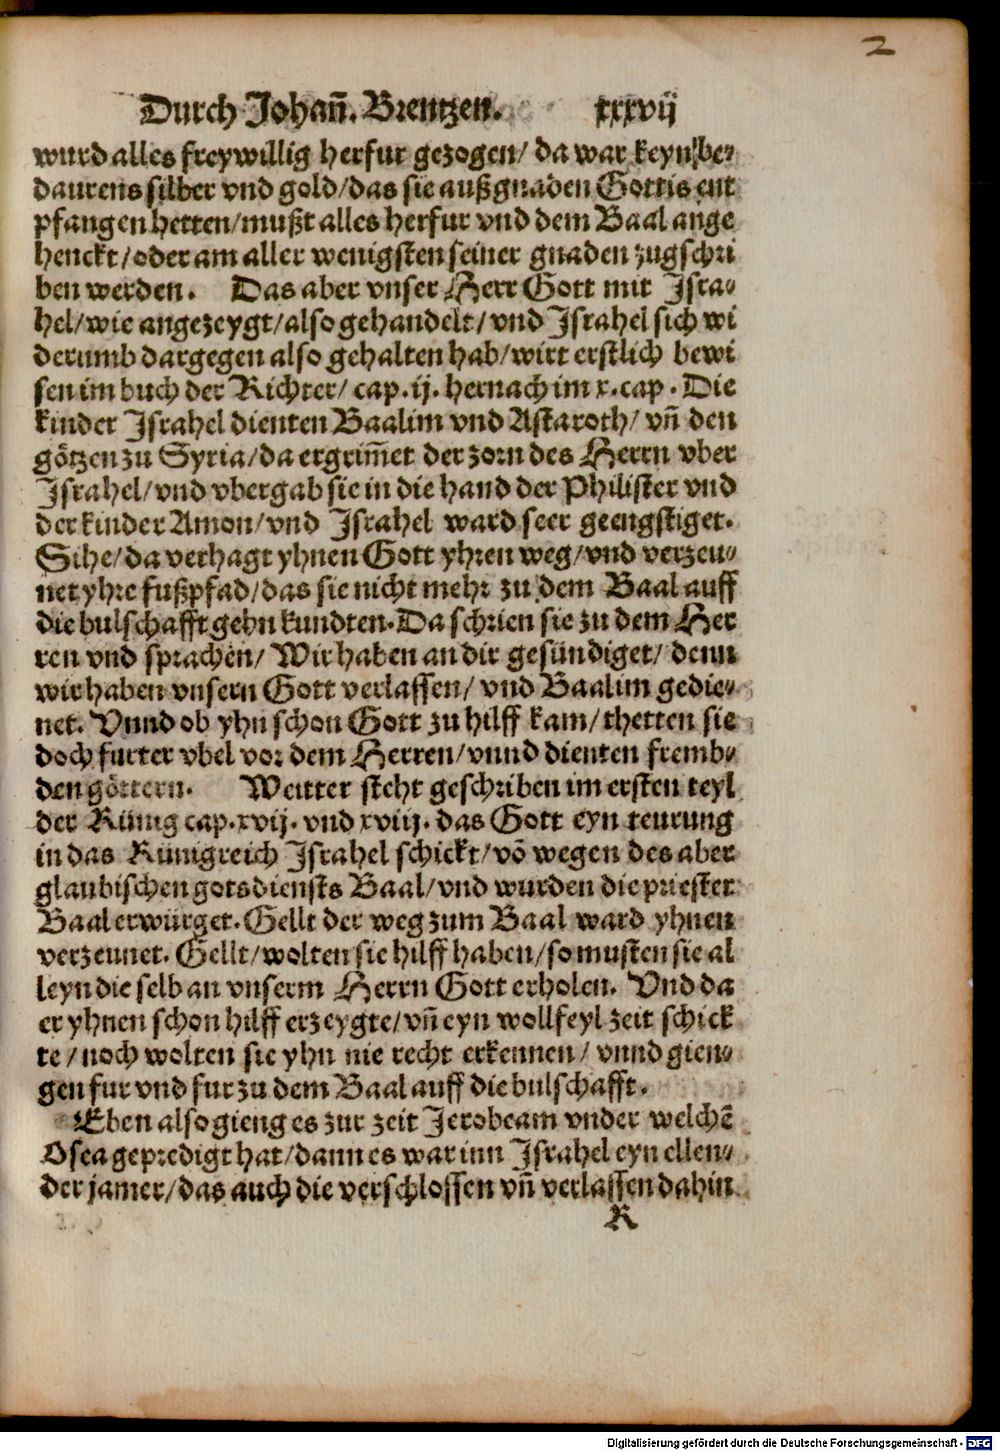 2
Durch Johañ. Brentzen. xxxvij
wurd alles freywillig herfur gezogen/ da war keyn be⸗
daurens silber vnd gold/das sie außgnaden Gottis ent
pfangen hetten/mußt alles herfur vnd dem Baal ange
henckt/oder am aller wenigsten seiner gnaden zugschri
ben werden. Das aber vnser Herr Gott mit Isra⸗
hel/wie angezeygt/also gehandelt/vnd Israhel sich wi
derumb dargegen also gehalten hab/wirt erstlich bewi
sen im buch der Richter/ cap.ij. hernach im x.cap. Die
kinder Israhel dienten Baalim vnd Astaroth/ vñ den
götzen zu Syria/da ergrim̃et der zorn des Herrn vber
Israhel/vnd vbergab sie in die hand der Philister vnd
der kinder Amon/vnd Israhel ward seer geengstiget.
Sihe/da verhagt yhnen Gott yhren weg/vnd verzeu⸗
net yhre fußpfad/das sie nicht mehr zu dem Baal auff
die bulschafft gehn kundten. Da schrien sie zu dem Her
ren vnd sprachen/ Wir haben an dir gesündiget/ denn
wir haben vnsern Gott verlassen/ vnd Baalim gedie⸗
net. Vnnd ob yhn schon Gott zu hilff kam/thetten sie
doch furter vbel vor dem Herren/vnnd dienten fremb⸗
den göttern. Weitter steht geschriben im ersten teyl
der Künig cap.xvij. vnd xviij. das Gott eyn teurung
in das Künigreich Israhel schickt/võ wegen des aber
glaubischen gotsdiensts Baal/vnd wurden die priester
Baal erwürget. Gellt der weg zum Baal ward yhnen
verzeunet. Gellt/wolten sie hilff haben/so musten sie al
leyn die selb an vnserm Herrn Gott erholen. Vnd da
er yhnen schon hilff erzeygte/vñ eyn wollfeyl zeit schick
te/noch wolten sie yhn nie recht erkennen/ vnnd gien⸗
gen fur vnd fur zu dem Baal auff die bulschafft.
Eben also gieng es zur zeit Jerobeam vnder welchẽ
Osea gepredigt hat/dann es war inn Israhel eyn ellen⸗
der jamer/das auch die verschlossen vñ verlassen dahin
K
Digitalisierung gefördert durch die Deutsche Forschungsgemeinschaft - DFG